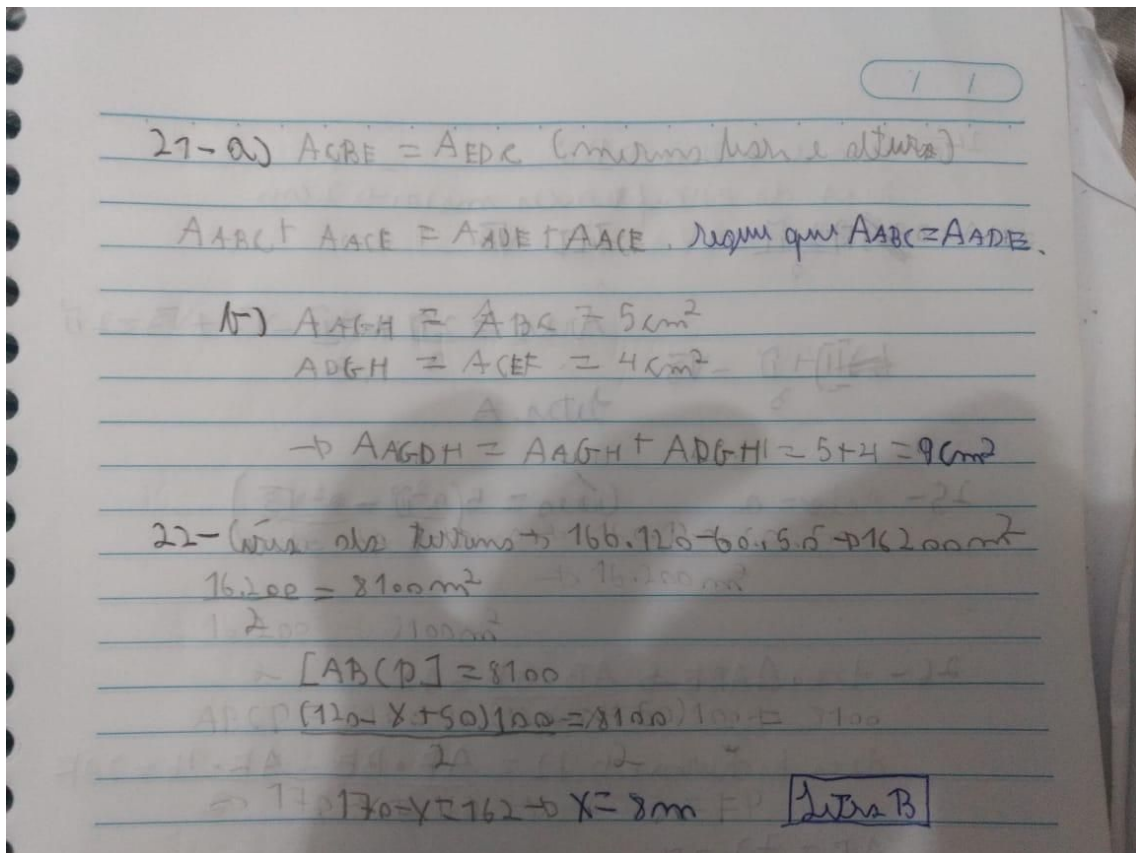 / /
21-a) ACBE = AEDC (mesma base e altura)
AABC + AACE = AADE + AACE, segue que AABC = AADE.
b) AAGH = ABC = 5cm²
ADGH = ACEF = 4cm²
→ AAGDH = AAGH + ADGH = 5+4 = 9cm²
22- Área do terreno → 160.120-60.50 → 16200m²
16.200 = 8100m²
2
[ABCP] = 8100
(120-X+50)100 = 8100
2
170-X=162 → X= 8m Letra B